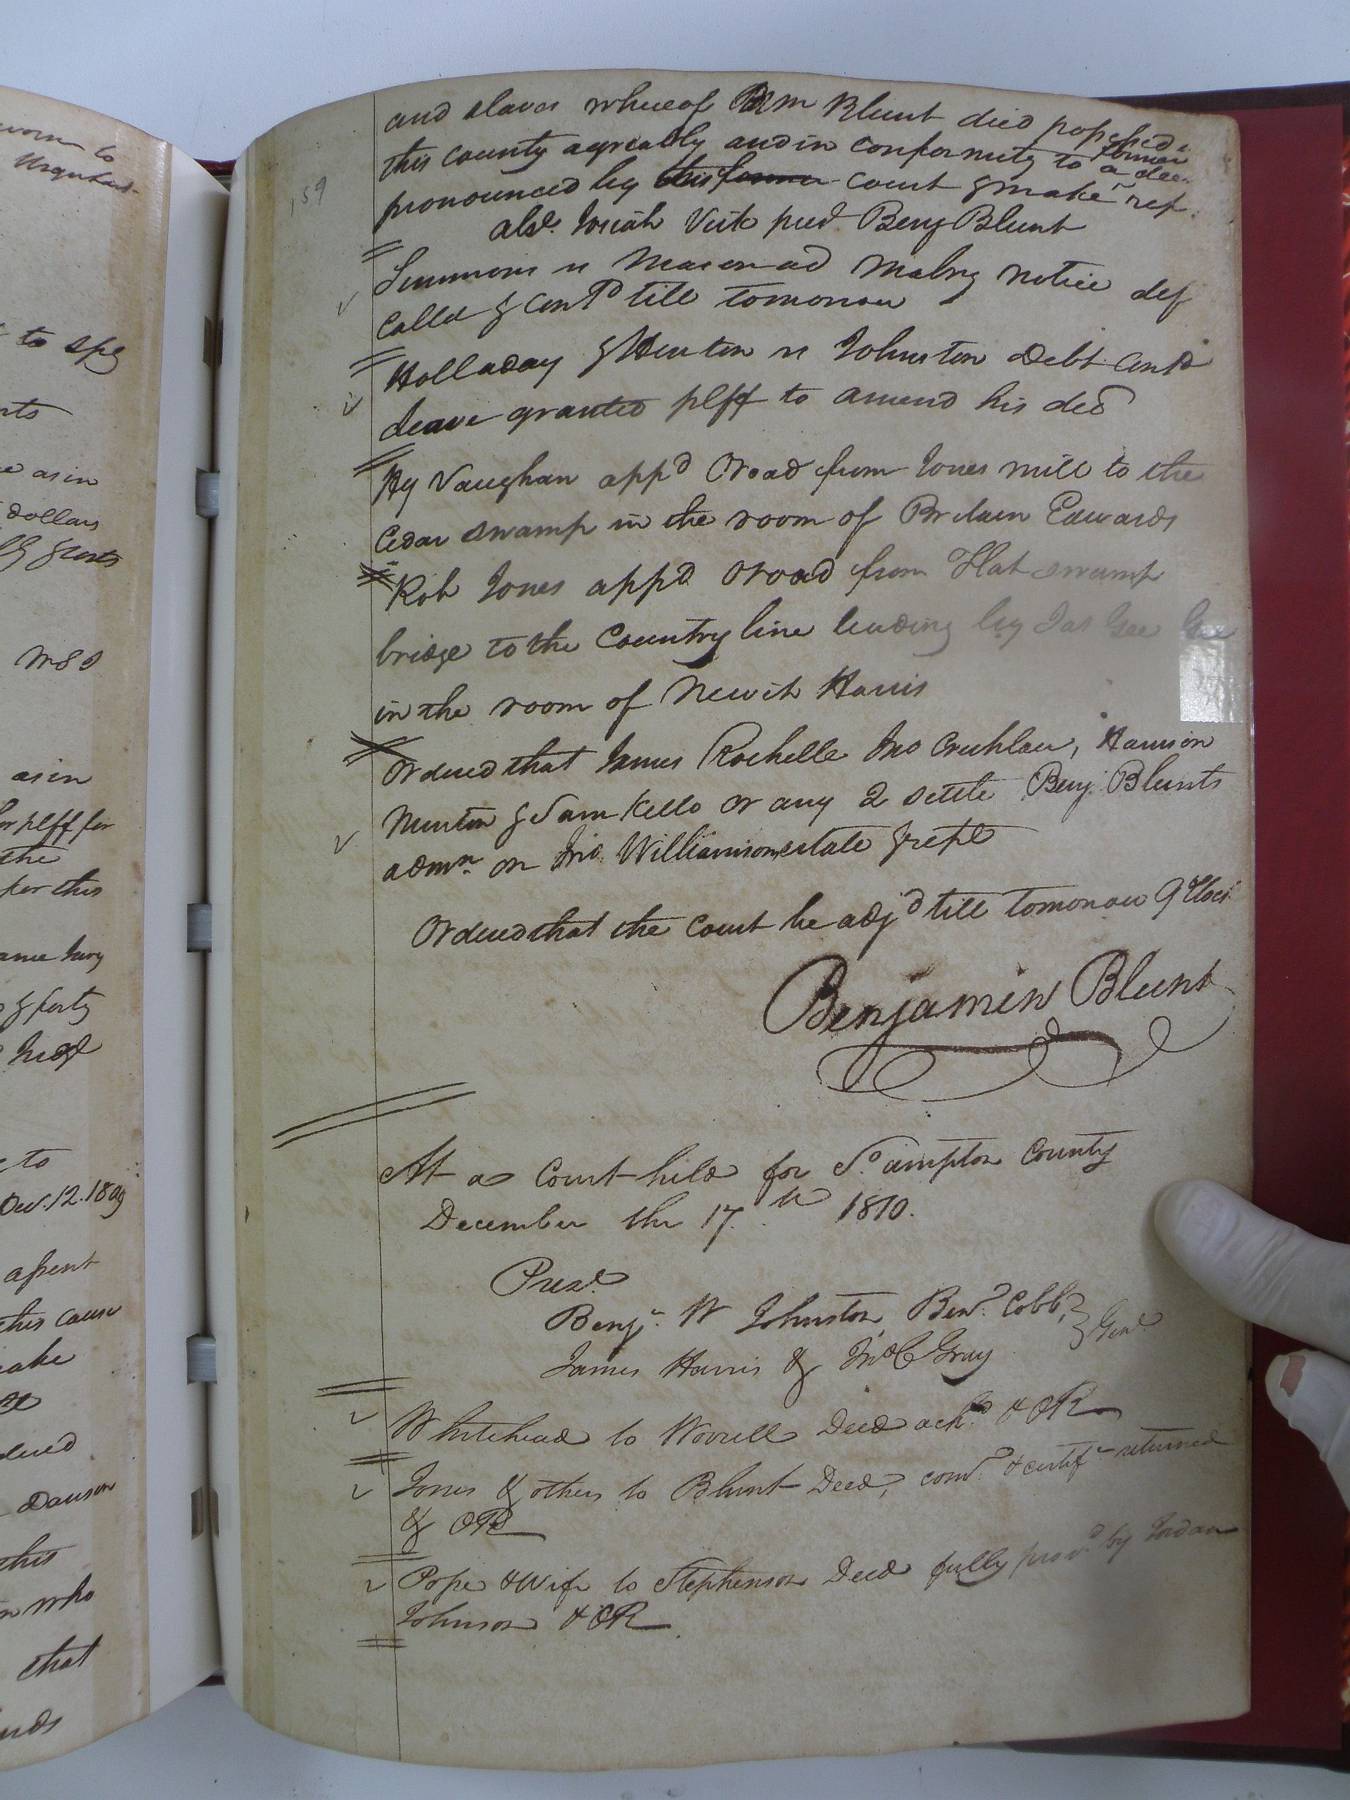 worn to
Urquhart
to spg
nts
e as in
dollars
& costs
as in
for plff for
the
for this
same Jury
& forty
to
Dec. 12. 1809
assent
this cause
make
Dawson
this
who
that
159
and slaves whereof Wm Blunt died possessed
this county agreably and in conformity to a dec
former
pronounced by this former court & make rep.
abst. Josiah Vick pres Benj Blunt
Simmons vs Mason ad Malry notice def
called & contd till tomorrow
Holladay & Hunton vs Johnston Debt contd
leave granted plff to amend his dec
Hy Vaughan appd O road from Jones mill to the
Cedar swamp in the room of Britain Edwards
Rob Jones appd O road from Flat swamp
bridge to the Country line leading by Jas Gee
in the room of Newit Harris
Ordered that James Rochelle Jno Crichlow, Harrison
Minton & Sam Kello or any 2 settle Benj. Blunts
admn. on Jno Williamson estate & rept
Ordered that the Court be adjd till tomorrow 9 Clock
Benjamin Blunt
At a Court held for So. ampton County
December the 17.th 1810.
Prest.
Benjn. W Johnston, Benn. Cobb, } Gent.
James Harris & Jno C Gray
Whitehead to Worrell Deed ackd. & OR
Jones & others to Blunt Deed, comn. & certife returned
& OR
Pope & Wife to Stephenson Deed fully provd by Jordan
Johnson & OR